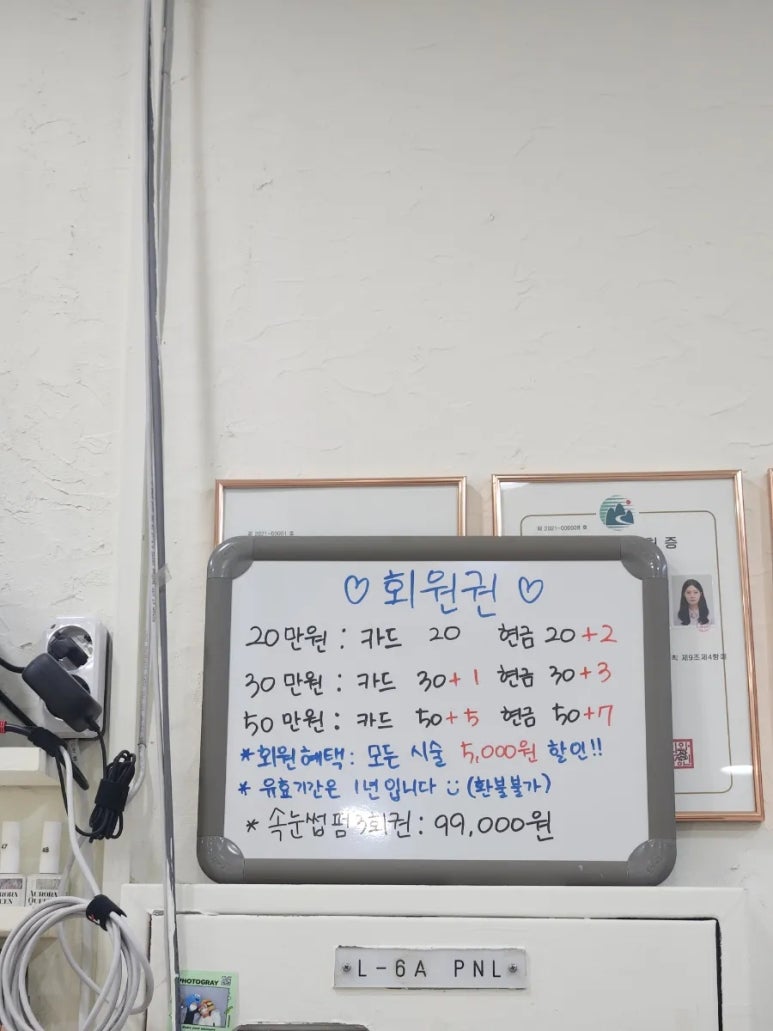 제 2021-000001 호
제 2021-000008 호
증
♡ 회원권 ♡
20만원 : 카드 20 현금 20+2
30만원 : 카드 30+1 현금 30+3
50만원 : 카드 50+5 현금 50+7
*회원혜택: 모든 시술 5,000원 할인!!
* 유효기간은 1년입니다 (환불불가)
* 속눈썹 펌 3회권 : 99,000원
제9조제4항에
L-6A PNL
PHOTOGRAY